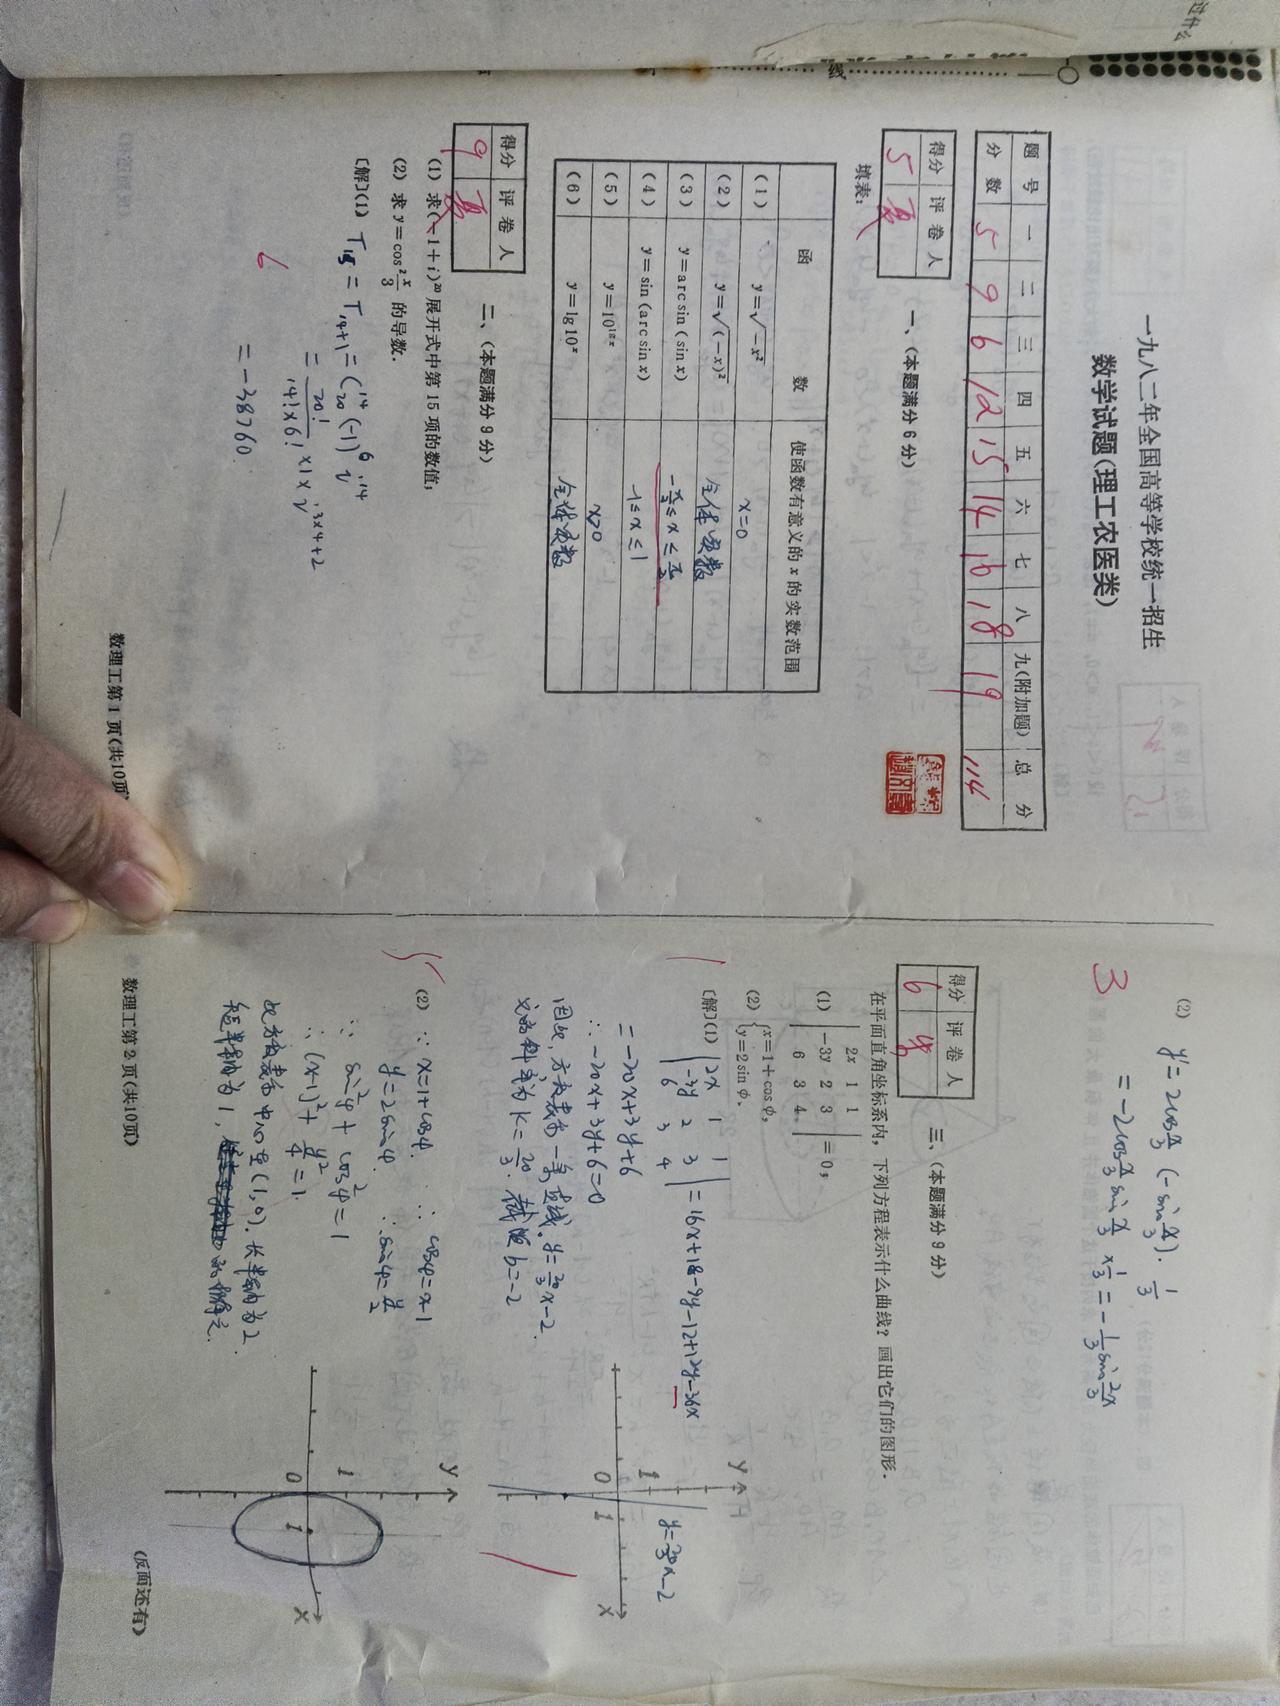 一九八二年全国高等学校统一招生
数学试题(理工农医类)
题号 一 二 三 四 五 六 七 八 九(附加题) 总分
分数 5 9 6 12 15 14 16 18 19 114
得分 评卷人
5 夏
一、(本题满分6分)
填表:
函数 使函数有意义的x的实数范围
(1) y=√-x² x=0
(2) y=√(-x)² 全体实数
(3) y=arc sin (sin x) -π/2≤x≤π/2
(4) y=sin (arc sin x) -1≤x≤1
(5) y=10^{lg x} x>0
(6) y=lg 10^x 全体实数
得分 评卷人
9 夏
二、(本题满分9分)
(1) 求(-1+i)²⁰展开式中第15项的数值;
(2) 求y=cos² x/3 的导数.
[解](1) T₁₅=T₁₄₊₁=C₂₀¹⁴(-1)⁶·i¹⁴
=20!/(14!×6!)×1×i^{3×4+2}
=-38760.
6
数理工第1页(共10页)
(2) y'=2cos x/3 (-sin x/3)·1/3
=-2cos x/3 sin x/3 × 1/3=-1/3 sin 2x/3
3
得分 评卷人
6
三、(本题满分9分)
在平面直角坐标系内,下列方程表示什么曲线?画出它们的图形.
(1) | 2x 1 1 |
| -3y 2 3 | =0;
| 6 3 4. |
(2) {x=1+cos φ,
y=2 sin φ.
[解](1) | 2x 1 1 |
| -3y 2 3 | =16x+18-9y-12+12y-36x
| 6 3 4 |
1
=-20x+3y+6
∴ -20x+3y+6=0
因此,方程表示一条直线.y=20/3 x-2
它的斜率为K=20/3. 截距b=-2
y
1
0 1 x
y=20/3 x-2
(2) ∵ x=1+cosφ. ∴ cosφ=x-1
y=2sinφ. ∴ sinφ=y/2
5
∵ sin²φ+cos²φ=1
∴ (x-1)²+y²/4=1.
此方程表示中心是(1,0),长半轴为2
短半轴为1, 的椭圆
y
1
0 1 x
数理工第2页(共10页)
(反面还有)